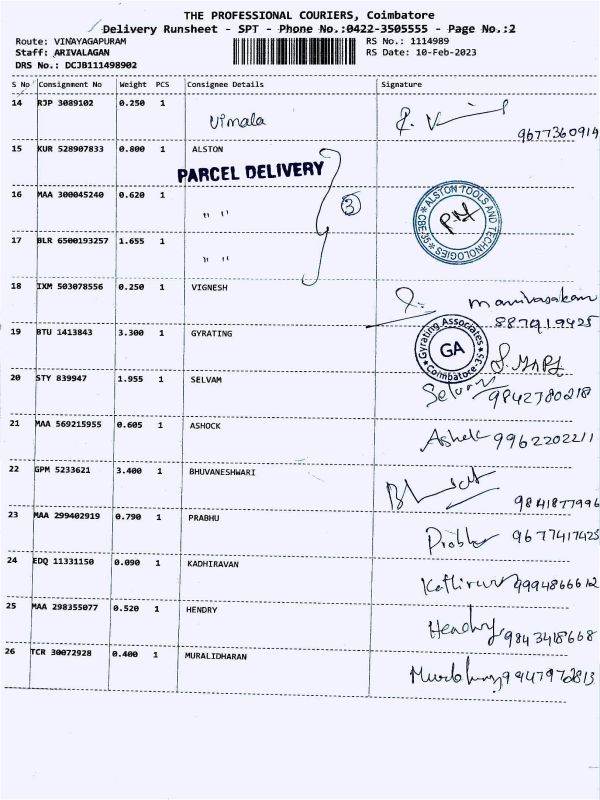 THE PROFESSIONAL COURIERS, Coimbatore
Delivery Runsheet - SPT - Phone No.:0422-3505555 - Page No.:2
Route: VINAYAGAPURAM RS No.: 1114989
Staff: ARIVALAGAN RS Date: 10-Feb-2023
DRS No.: DCJB111498902
S No Consignment No Weight PCS Consignee Details Signature
14 RJP 3089102 0.250 1 Vimala
9677360914
15 KUR 528907833 0.800 1 ALSTON
PARCEL DELIVERY
16 MAA 300045240 0.620 1 " "
3
ALSTON TOOLS AND TECHNOLOGIES * CBE-35 *
17 BLR 6500193257 1.655 1 " "
18 IXM 503078556 0.250 1 VIGNESH
manivasakam
8870919425
19 BTU 1413843 3.300 1 GYRATING
Gyrating Associates * Coimbatore-35 *
GA
20 STY 839947 1.955 1 SELVAM
Selvam 9842780218
21 MAA 569215955 0.605 1 ASHOCK
Ashok 9962202211
22 GPM 5233621 3.400 1 BHUVANESHWARI
9841877996
23 MAA 299402919 0.790 1 PRABHU
9677417425
24 EDQ 11331150 0.090 1 KADHIRAVAN
9994866612
25 MAA 298355077 0.520 1 HENDRY
Hendry 9843418668
26 TCR 30072928 0.400 1 MURALIDHARAN
9947972813